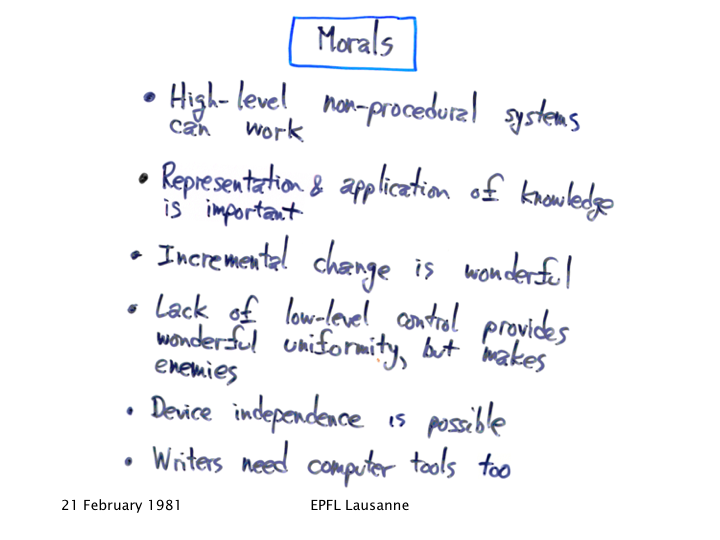 Morals
• High-level non-procedural systems
can work
• Representation & application of knowledge
is important
• Incremental change is wonderful
• Lack of low-level control provides
wonderful uniformity, but makes
enemies
• Device independence is possible
• Writers need computer tools too
21 February 1981 EPFL Lausanne